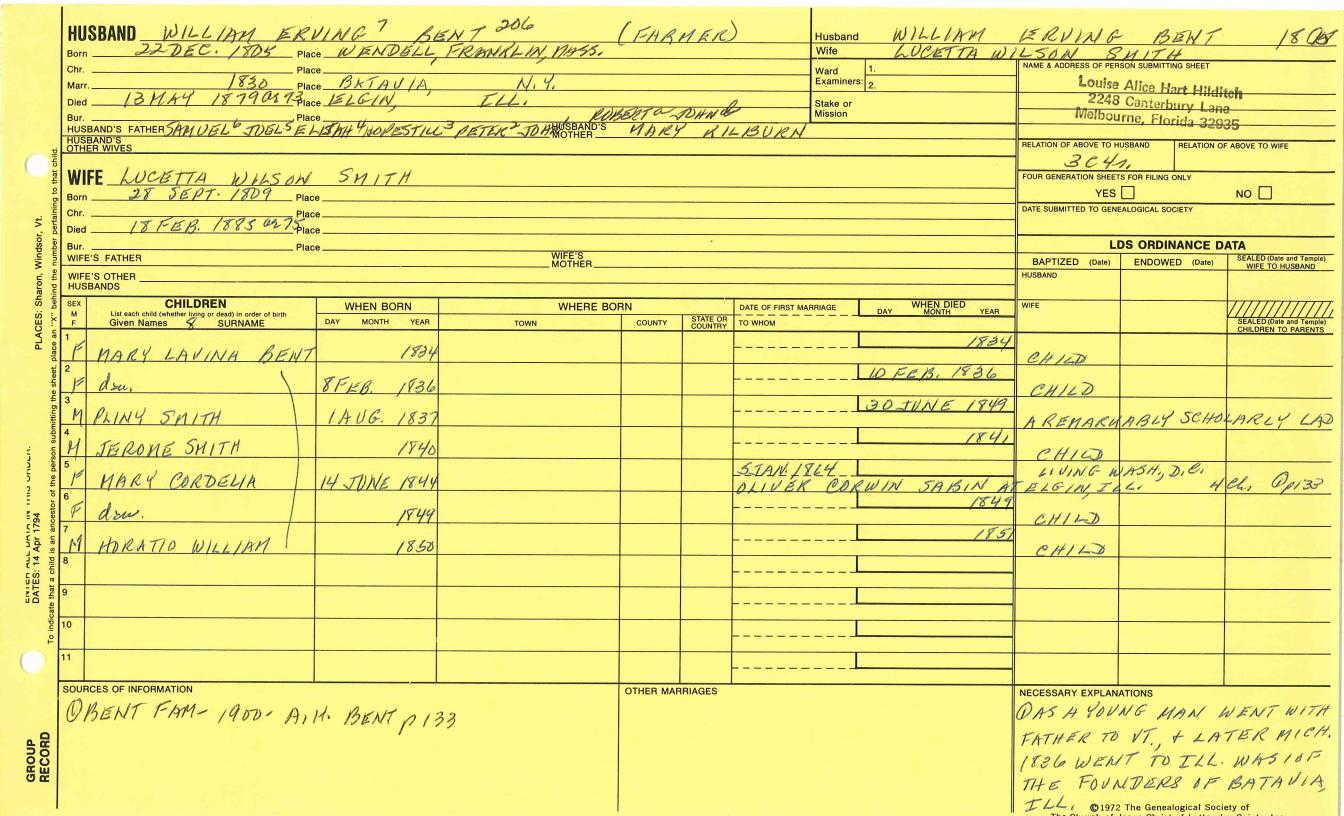 HUSBAND WILLIAM ERVING 7 BENT 206 (FARMER)
Born 22 DEC. 1805 Place WENDELL, FRANKLIN, MASS.
Chr. Place
Marr. 1830 Place BATAVIA, N.Y.
Died 13 MAY 1879 Place ELGIN, ILL.
Bur. Place ROBERT JOHN
HUSBAND'S FATHER SAMUEL 6 JOEL 5 ELIJAH 4 HOPESTILL 3 PETER 2 JOHN HUSBAND'S MOTHER MARY KILBURN
HUSBAND'S OTHER WIVES
Husband WILLIAM ERVING BENT
Wife LUCETTA WILSON SMITH
Ward Examiners: 1.
2.
Stake or Mission
NAME & ADDRESS OF PERSON SUBMITTING SHEET
Louise Alice Hart Hilditch
2248 Canterbury Lane
Melbourne, Florida 32935
RELATION OF ABOVE TO HUSBAND RELATION OF ABOVE TO WIFE
3C4r.
FOUR GENERATION SHEETS FOR FILING ONLY
YES NO
DATE SUBMITTED TO GENEALOGICAL SOCIETY
WIFE LUCETTA WILSON SMITH
Born 28 SEPT. 1809 Place
Chr. Place
Died 18 FEB. 1885 Place
Bur. Place
WIFE'S FATHER WIFE'S MOTHER
WIFE'S OTHER HUSBANDS
LDS ORDINANCE DATA
BAPTIZED (Date) ENDOWED (Date) SEALED (Date and Temple) WIFE TO HUSBAND
HUSBAND
WIFE
SEALED (Date and Temple) CHILDREN TO PARENTS
SEX M F CHILDREN WHEN BORN WHERE BORN DATE OF FIRST MARRIAGE WHEN DIED
List each child (whether living or dead) in order of birth
Given Names 8 SURNAME DAY MONTH YEAR TOWN COUNTY STATE OR COUNTRY TO WHOM DAY MONTH YEAR
1 F MARY LAVINA BENT 1834 1834 CHILD
2 F dau. 8 FEB. 1836 10 FEB. 1836 CHILD
3 M PLINY SMITH 1 AUG. 1837 30 JUNE 1849 A REMARKABLY SCHOLARLY LAD
4 M JEROME SMITH 1840 1841 CHILD
5 F MARY CORDELIA 14 JUNE 1844 5 JAN. 1864 LIVING WASH., D.C.
OLIVER CORWIN SABIN AT ELGIN, ILL. 4 Ch. ① p133
6 F dau. 1849 1849 CHILD
7 M HORATIO WILLIAM 1850 1851 CHILD
8
9
10
11
SOURCES OF INFORMATION
① BENT FAM- 1900- A.H. BENT p 133
OTHER MARRIAGES
NECESSARY EXPLANATIONS
① AS A YOUNG MAN WENT WITH
FATHER TO VT., & LATER MICH.
1836 WENT TO ILL. WAS 1 OF
THE FOUNDERS OF BATAVIA,
ILL.
©1972 The Genealogical Society of
PLACES: Sharon, Windsor, Vt.
ENTER ALL DATA IN THIS ORDER:
DATES: 14 Apr 1794
To indicate that a child is an ancestor of the person submitting the sheet, place an "X" behind the number pertaining to that child.
GROUP
RECORD